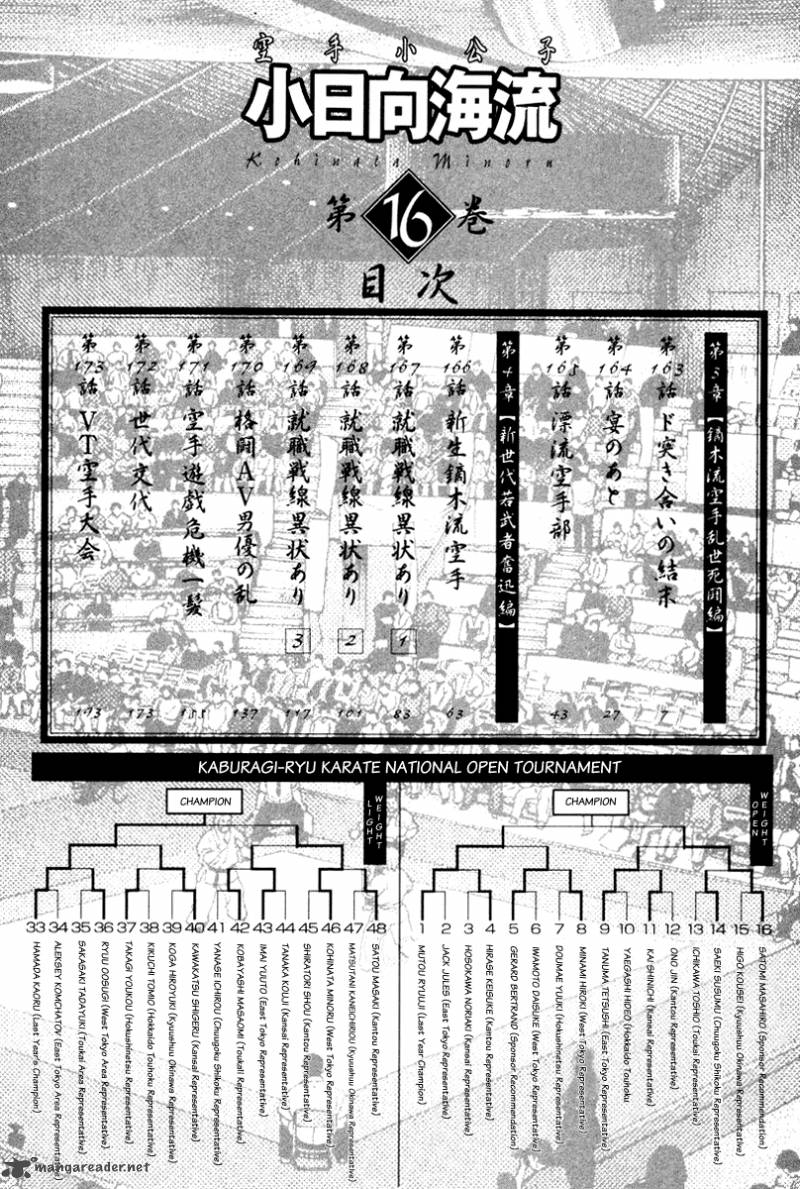 空手小公子
小日向海流
Kohinata Minoru
第16巻
目次
第3章【鏑木流空手乱世死闘編】
第163話 ド突き合いの結末 7
第164話 宴のあと 27
第165話 漂流空手部 43
第4章【新世代若武者奮迅編】
第166話 新生鏑木流空手 63
第167話 就職戦線異状あり 1 83
第168話 就職戦線異状あり 2 101
第169話 就職戦線異状あり 3 117
第170話 格闘AV男優の乱 137
第171話 空手遊戯危機一髪 155
第172話 世代交代 173
第173話 VT空手大会 193
KABURAGI-RYU KARATE NATIONAL OPEN TOURNAMENT
CHAMPION
LIGHT WEIGHT
33 HAMADA KAORU (Last Year's Champion)
34 ALEKSEY KOMCHATOV (East Tokyo Area Representative)
35 SAKASAKI TADAYUKI (Toukai Area Representative)
36 RYUU OOSUGI (West Tokyo Area Representative)
37 TAKAGI YOUKOU (Hokushinetsu Representative)
38 KIKUCHI TOMIO (Hokkaido Touhoku Representative)
39 KOGA HIROYUKI (Kyuushuu Okinawa Representative)
40 KAWAKATSU SHIGERU (Kansai Representative)
41 YANASE ICHIROU (Chuugoku Shikoku Representative)
42 KOBAYASHI MASAOMI (Toukai Representative)
43 IMAI YUUTO (East Tokyo Representative)
44 TANAKA KOUJI (Kansai Representative)
45 SHIRATORI SHOU (Kantou Representative)
46 KOHINATA MINORU (West Tokyo Representative)
47 MATSUTANI KANEICHIROU (Kyuushuu Okinawa Representative)
48 SATOU MASAKI (Kantou Representative)
CHAMPION
OPEN WEIGHT
1 MUTOU RYUUJI (Last Year Champion)
2 JACK JULES (East Tokyo Representative)
3 HOSOKAWA NORIAKI (Kansai Representative)
4 HIRASE KEISUKE (Kantou Representative)
5 GERARD BERTRAND (Sponsor Recommendation)
6 IWAMOTO DAISUKE (West Tokyo Representative)
7 DOUMAE YUUKI (Hokushinetsu Representative)
8 MINAMI HIROKI (West Tokyo Representative)
9 TANUMA TETSUSHI (East Tokyo Representative)
10 YAEGASHI HIDEO (Hokkaido Touhoku
11 KAI SHINICHI (Kansai Representative)
12 ONO JIN (Kantou Representative)
13 ICHIKAWA TOSHIO (Toukai Representative)
14 SAEKI SUSUMU (Chuugoku Shikoku Representative)
15 HIGO KOUSEI (Kyuushuu Okinawa Representative)
16 SATOMI MASAHIRO (Sponsor Recommendation)
mangareader.net